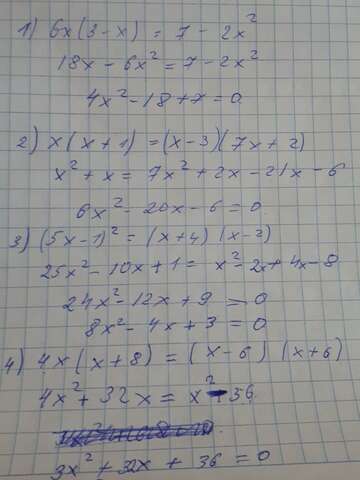 1) 6x(3-x) = 7 - 2x²
18x - 6x² = 7 - 2x²
4x² - 18 + 7 = 0
2) x(x+1) = (x-3)(7x+2)
x² + x = 7x² + 2x - 21x - 6
6x² - 20x - 6 = 0
3) (5x-1)² = (x+4)(x-2)
25x² - 10x + 1 = x² - 2x + 4x - 8
24x² - 12x + 9 = 0
8x² - 4x + 3 = 0
4) 4x(x+8) = (x-6)(x+6)
4x² + 32x = x² - 36
3x² + 32x + 36 = 0